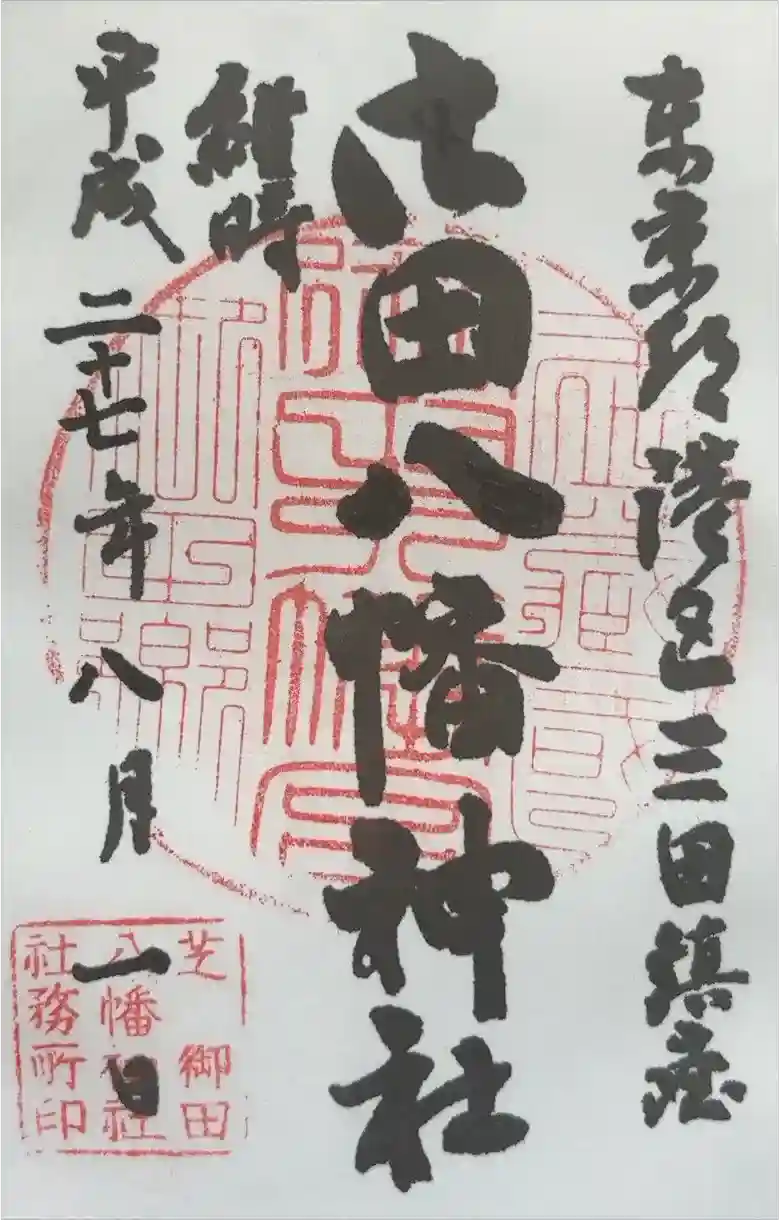 东京都港区三田鎮座
御田八幡神社
維時
平成二十七年八月一日
芝 御田
八幡神社
社務所印